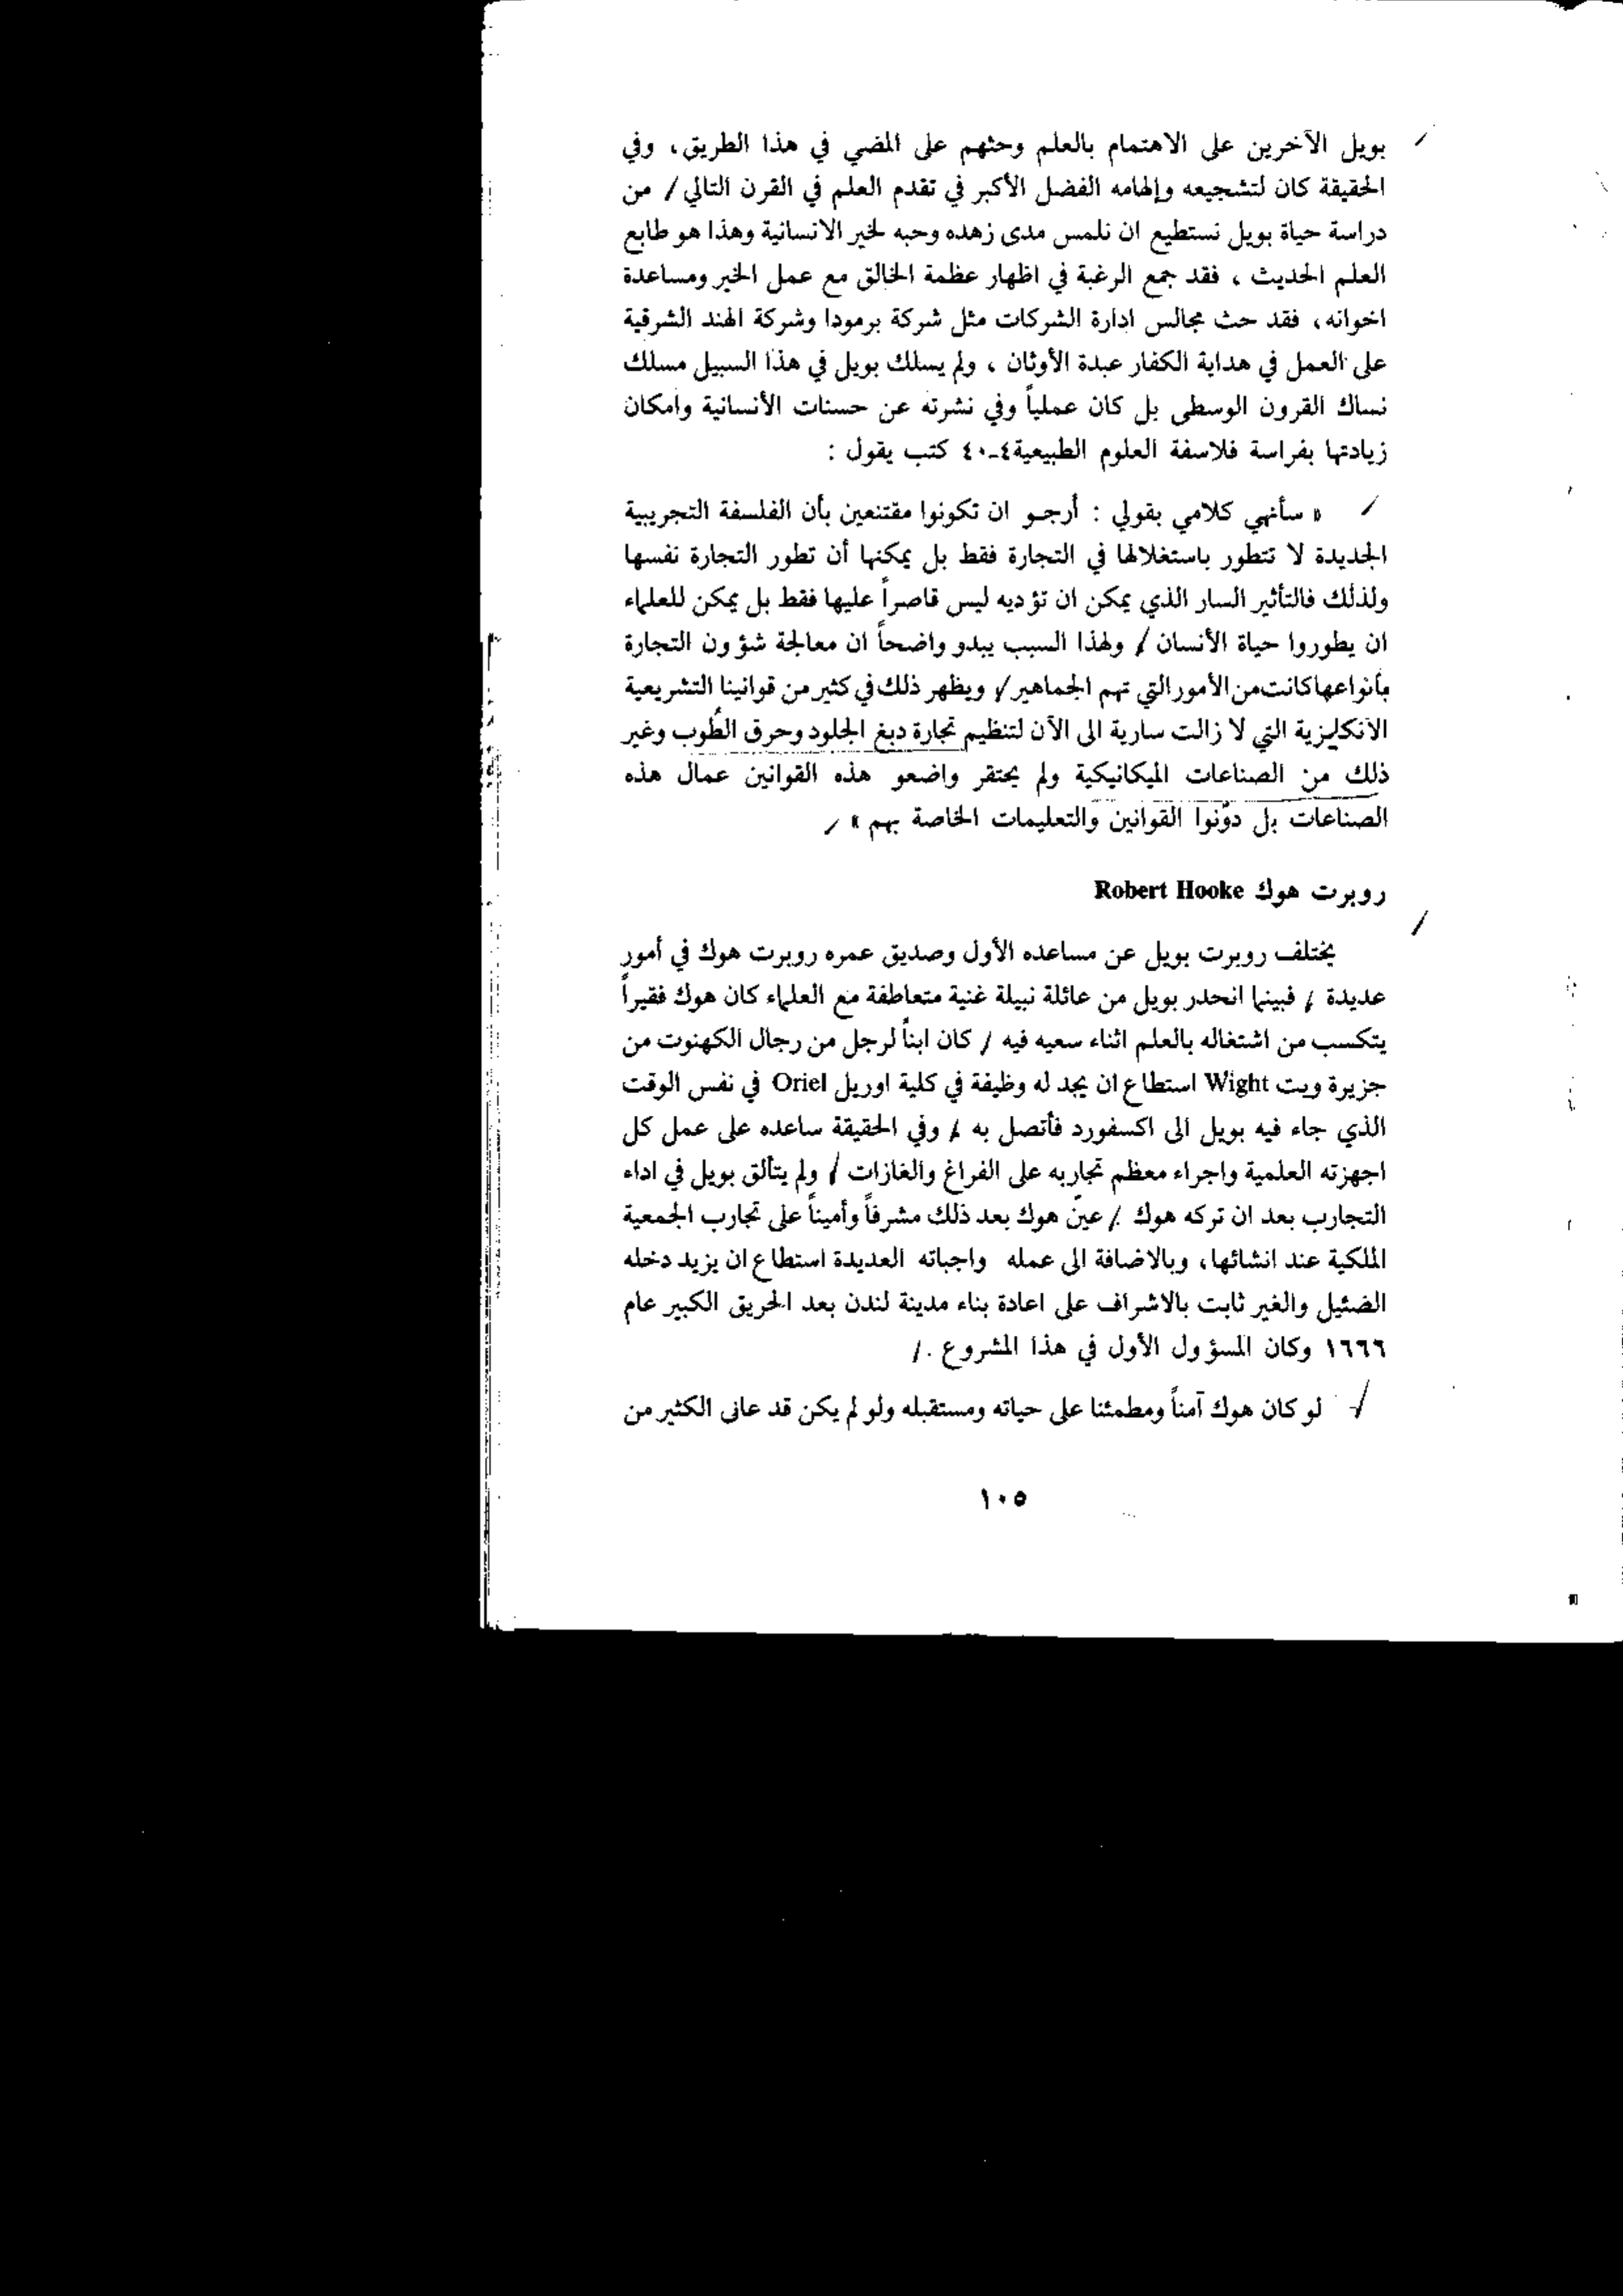 بويل الآخرين على الاهتمام بالعلم وحثهم على المضي في هذا الطريق، وفي
الحقيقة كان لتشجيعه وإلهامه الفضل الأكبر في تقدم العلم في القرن التالي / من
دراسة حياة بويل نستطيع ان نلمس مدى زهده وحبه لخير الانسانية وهذا هو طابع
العلم الحديث ، فقد جمع الرغبة في اظهار عظمة الخالق مع عمل الخير ومساعدة
اخوانه، فقد حث مجالس ادارة الشركات مثل شركة برمودا وشركة الهند الشرقية
على العمل في هداية الكفار عبدة الأوثان ، ولم يسلك بويل في هذا السبيل مسلك
نساك القرون الوسطى بل كان عملياً وفي نشرته عن حسنات الأنسانية وامكان
زيادتها بفراسة فلاسفة العلوم الطبيعية٤-٤٠ كتب يقول :
« سأنهي كلامي بقولي : أرجـو ان تكونوا مقتنعين بأن الفلسفة التجريبية
الجديدة لا تتطور باستغلالها في التجارة فقط بل يمكنها أن تطور التجارة نفسها
ولذلك فالتأثير السار الذي يمكن ان تؤديه ليس قاصراً عليها فقط بل يمكن للعلماء
ان يطوروا حياة الأنسان / ولهذا السبب يبدو واضحاً ان معالجة شؤون التجارة
بأنواعها كانت من الأمور التي تهم الجماهير/ ويظهر ذلك في كثير من قوانينا التشريعية
الانكليزية التي لا زالت سارية الى الآن لتنظيم تجارة دبغ الجلود وحرق الطُوب وغير
ذلك من الصناعات الميكانيكية ولم يحتقر واضعو هذه القوانين عمال هذه
الصناعات بل دوّنوا القوانين والتعليمات الخاصة بهم »
روبرت هوك Robert Hooke
يختلف روبرت بويل عن مساعده الأول وصديق عمره روبرت هوك في أمور
عديدة / فبينما انحدر بويل من عائلة نبيلة غنية متعاطفة مع العلماء كان هوك فقيراً
يتكسب من اشتغاله بالعلم اثناء سعيه فيه / كان ابناً لرجل من رجال الكهنوت من
جزيرة ويت Wight استطاع ان يجد له وظيفة في كلية اوريل Oriel في نفس الوقت
الذي جاء فيه بويل الى اكسفورد فأتصل به / وفي الحقيقة ساعده على عمل كل
اجهزته العلمية واجراء معظم تجاربه على الفراغ والغازات / ولم يتألق بويل في اداء
التجارب بعد ان تركه هوك / عيّن هوك بعد ذلك مشرفاً وأميناً على تجارب الجمعية
الملكية عند انشائها، وبالاضافة الى عمله واجباته العديدة استطاع ان يزيد دخله
الضئيل والغير ثابت بالاشراف على اعادة بناء مدينة لندن بعد الحريق الكبير عام
١٦٦٦ وكان المسؤول الأول في هذا المشروع . /
لو كان هوك آمناً ومطمئنا على حياته ومستقبله ولو لم يكن قد عانى الكثير من
١٠٥